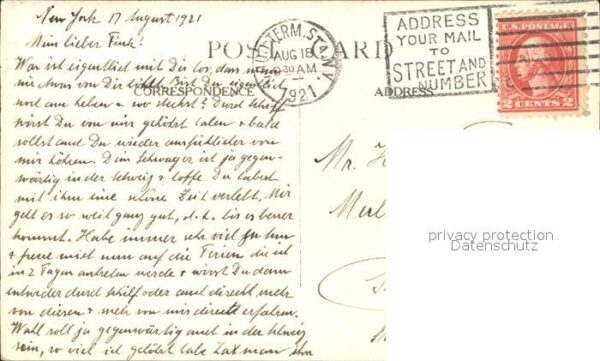 New York 17 August 1921
Mein lieber Fink!
POST CARD
TERM. STA. N.Y.
AUG 18
30 AM
1921
ADDRESS
YOUR MAIL
TO
STREET AND
NUMBER
U.S. POSTAGE
2 CENTS 2
CORRESPONDENCE
ADDRESS
War ist eigentlich mit Dir los, dass man
nichts von Dir hört. Bist Du eigentlich
noch am Leben & wo steckst?
wirst Du von mir gehört haben & bald
sollst auch Du wieder ausführlicher von
mir hören. Dein Schwager ist ja gegen-
wärtig in der & hoffe Du habest
mit ihm eine schöne Zeit verlebt. Mir
geht es so weit ganz gut, d.h. bis es besser
kommt. Habe immer sehr viel zu tun
& freue mich nun auf die Ferien die ich
in 2 Tagen antreten werde & wirst Du dann
entweder durch Schilf oder auch direkt mehr
von diesen & mehr von mir direct erfahren.
Wahl soll ja gegenwärtig auch in der Schweiz
sein, so viel ich gehört habe hat man ihn
Mr. H
privacy protection
Datenschutz